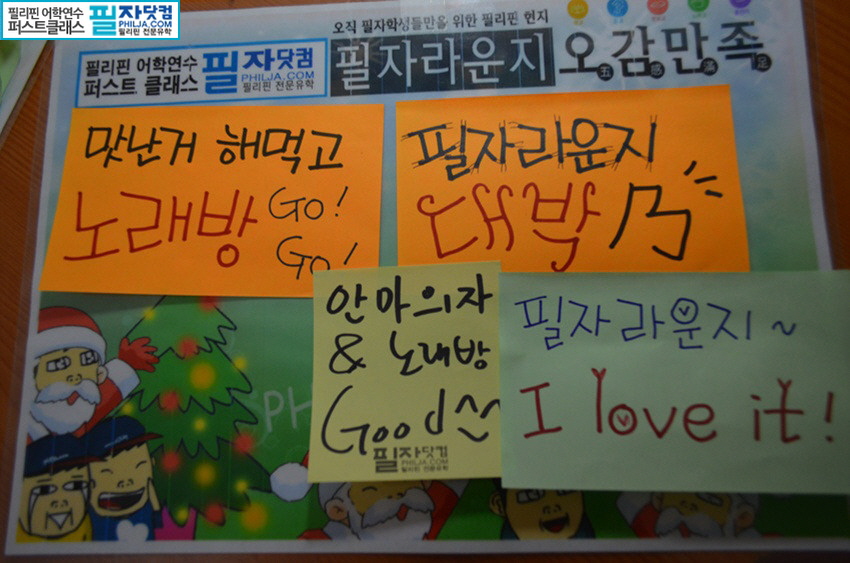 필리핀 어학연수
퍼스트클래스
필자닷컴
PHILJA.COM
필리핀 전문유학
오직 필자학생들만을 위한 필리핀 현지
필리핀 어학연수
퍼스트 클래스
필자닷컴
PHILJA.COM
필리핀 전문유학
필자라운지 오감만족
맛난거 해먹고
노래방 Go!
Go!
필자라운지
대박
안마의자
& 노래방
Good^^
필자닷컴
PHILJA.COM
필리핀 전문유학
필자라운지~
I love it!
PH